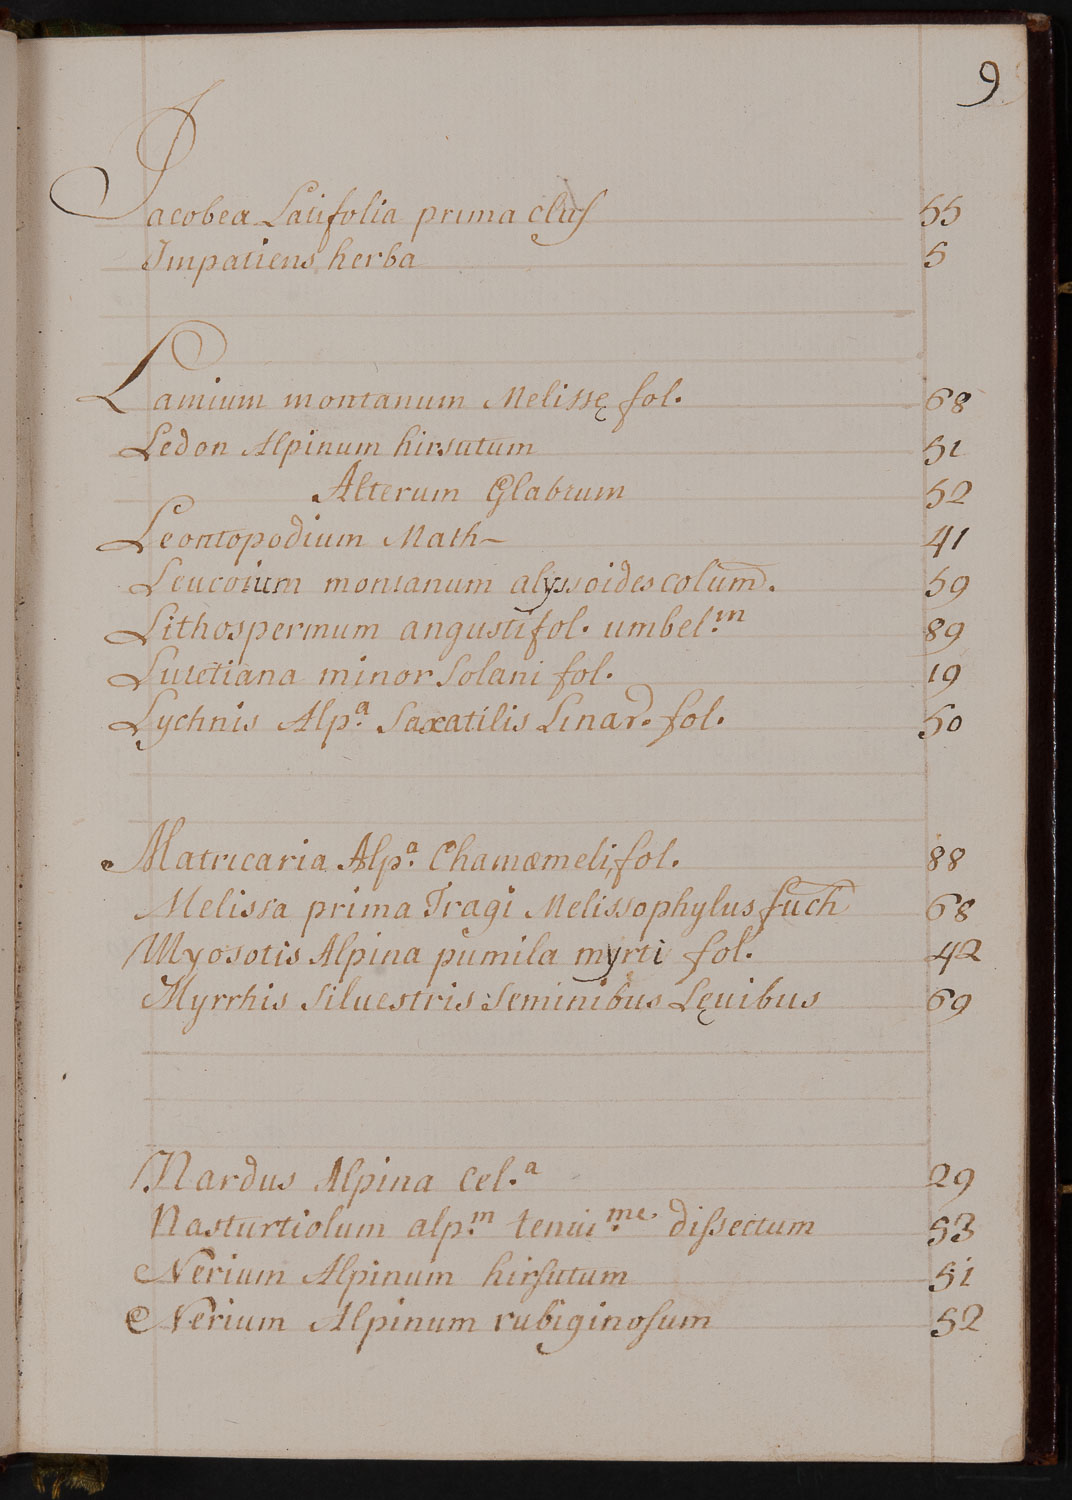 9
Jacobea Latifolia prima clus 55
Impatiens herba 5
Lamium montanum Melissę fol. 68
Ledon Alpinum hirsutum 51
Alterum Glabrum 52
Leontopodium Math- 41
Leucoium montanum alyssoides colum. 59
Lithospermum angustifol. umbel.m 89
Lutetiana minor Solani fol. 19
Lychnis Alp.a Saxatilis Linar. fol. 50
Matricaria Alp.a Chamæmeli, fol. 88
Melissa prima Tragi Melissophylus fuch 68
Myosotis Alpina pumila myrti fol. 42
Myrrhis Siluestris Seminibus Lęuibus 69
Nardus Alpina Cel.a 29
Nasturtiolum alp.m tenui.me. dissectum 53
Nerium Alpinum hirsutum 51
Nerium Alpinum rubiginosum 52